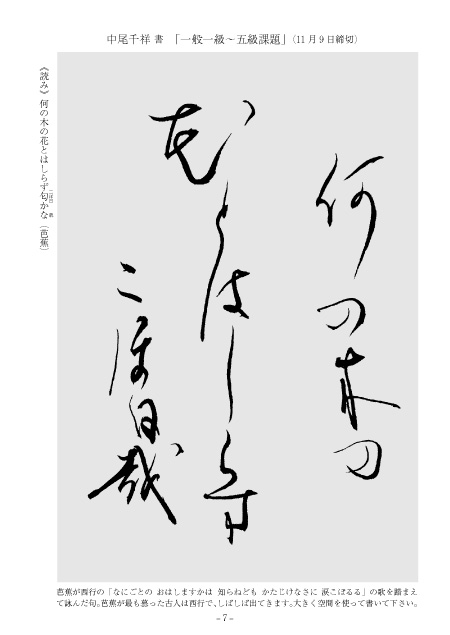 中尾千祥 書 「一般一級～五級課題」（11月9日締切）
何の木の
花とはしら寸
二保日哉
《読み》何の木の花とはしらず匂かな（芭蕉）
芭蕉が西行の「なにごとの おはしますかは 知らねども かたじけなさに 涙こぼるる」の歌を踏まえ
て詠んだ句。芭蕉が最も慕った古人は西行で、しばしば出てきます。大きく空間を使って書いて下さい。
- 7 -